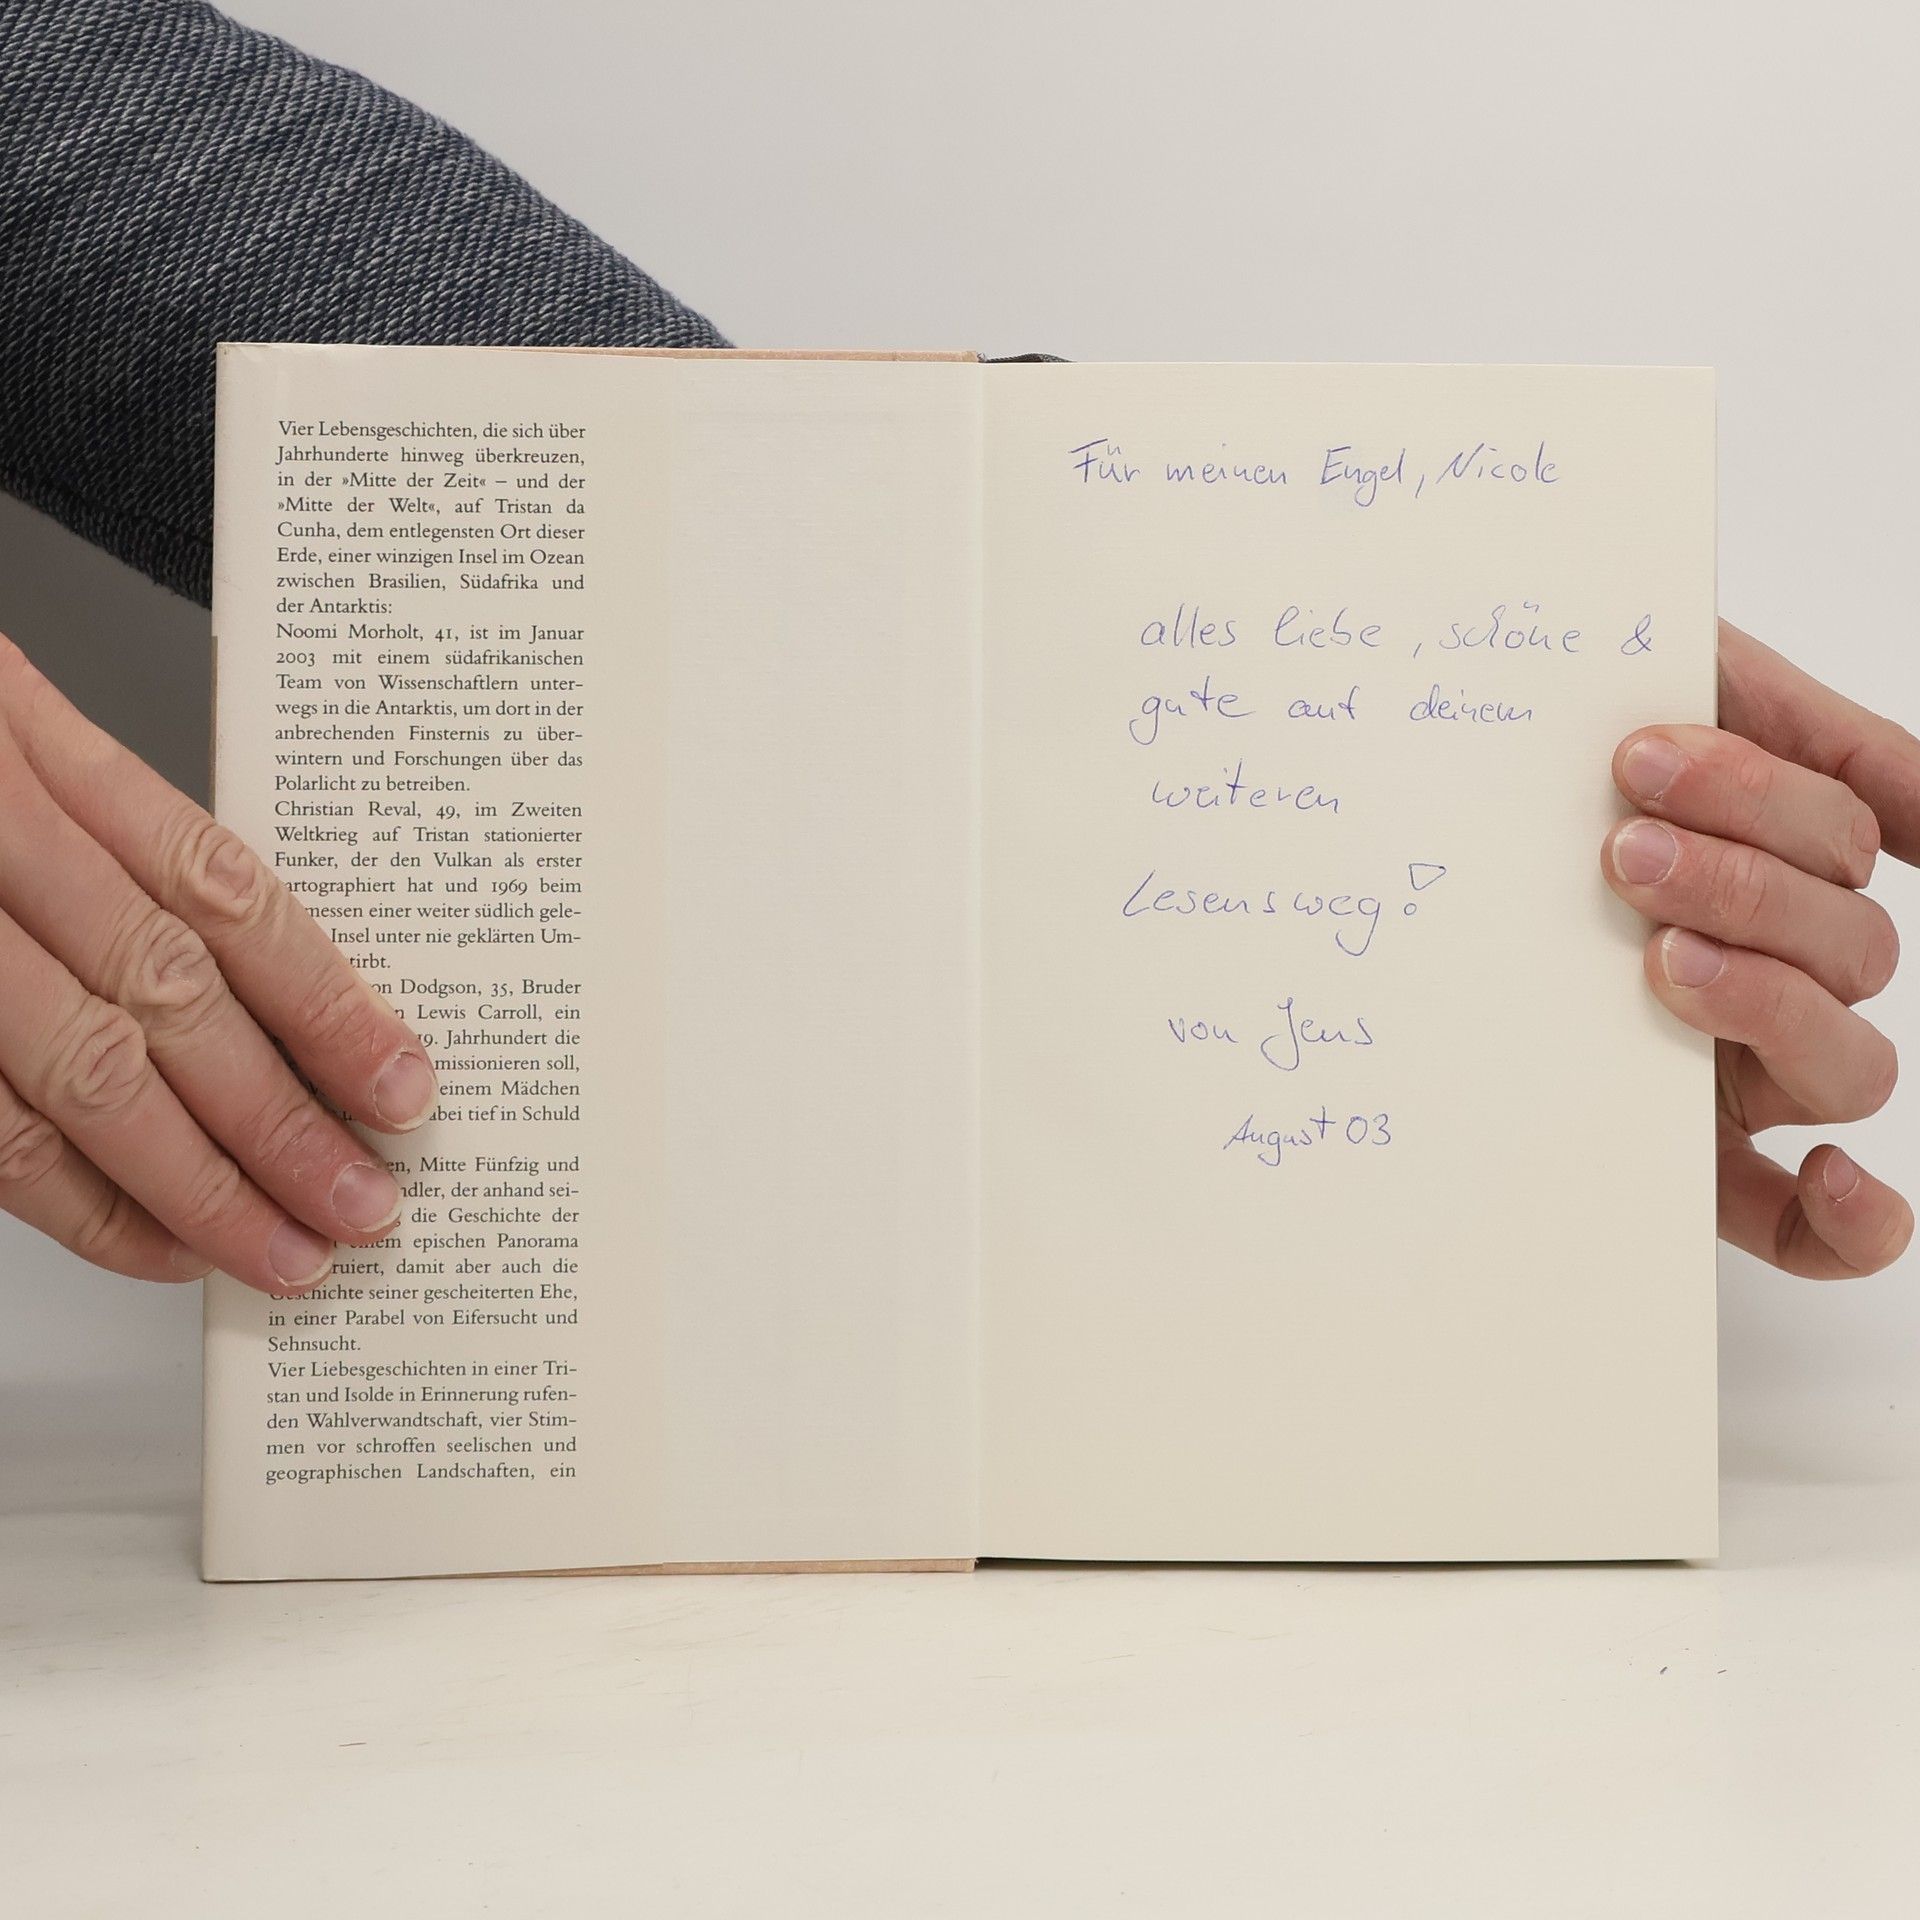 Vier Lebensgeschichten, die sich über
Jahrhunderte hinweg überkreuzen,
in der »Mitte der Zeit« – und der
»Mitte der Welt«, auf Tristan da
Cunha, dem entlegensten Ort dieser
Erde, einer winzigen Insel im Ozean
zwischen Brasilien, Südafrika und
der Antarktis:
Noomi Morholt, 41, ist im Januar
2003 mit einem südafrikanischen
Team von Wissenschaftlern unter-
wegs in die Antarktis, um dort in der
anbrechenden Finsternis zu über-
wintern und Forschungen über das
Polarlicht zu betreiben.
Christian Reval, 49, im Zweiten
Weltkrieg auf Tristan stationierter
Funker, der den Vulkan als erster
artographiert hat und 1969 beim
messen einer weiter südlich gele-
Insel unter nie geklärten Um-
tirbt.
on Dodgson, 35, Bruder
n Lewis Carroll, ein
19. Jahrhundert die
missionieren soll,
einem Mädchen
abei tief in Schuld
en, Mitte Fünfzig und
ndler, der anhand sei-
die Geschichte der
einem epischen Panorama
ruiert, damit aber auch die
Geschichte seiner gescheiterten Ehe,
in einer Parabel von Eifersucht und
Sehnsucht.
Vier Liebesgeschichten in einer Tri-
stan und Isolde in Erinnerung rufen-
den Wahlverwandtschaft, vier Stim-
men vor schroffen seelischen und
geographischen Landschaften, ein
Für meinen Engel, Nicole
alles liebe, schöne &
gute auf deinem
weiteren
Lesensweg!
von Jens
August 03